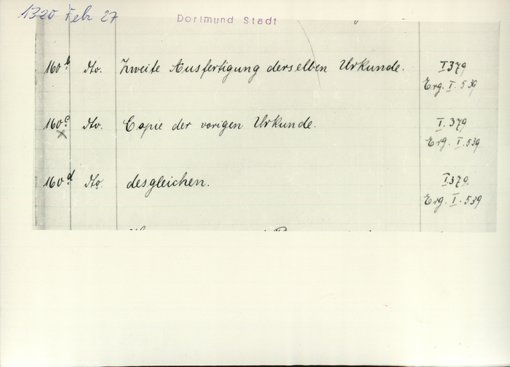 1320 Febr 27 Dortmund Stadt
160 b Ito. Zweite Ausfertigung derselben Urkunde. I 379
Erg. I. 539
160 c Ito. Copie der vorigen Urkunde. I. 379
Erg. I. 539
160 d Ito. desgleichen. I 379
Erg. I. 539